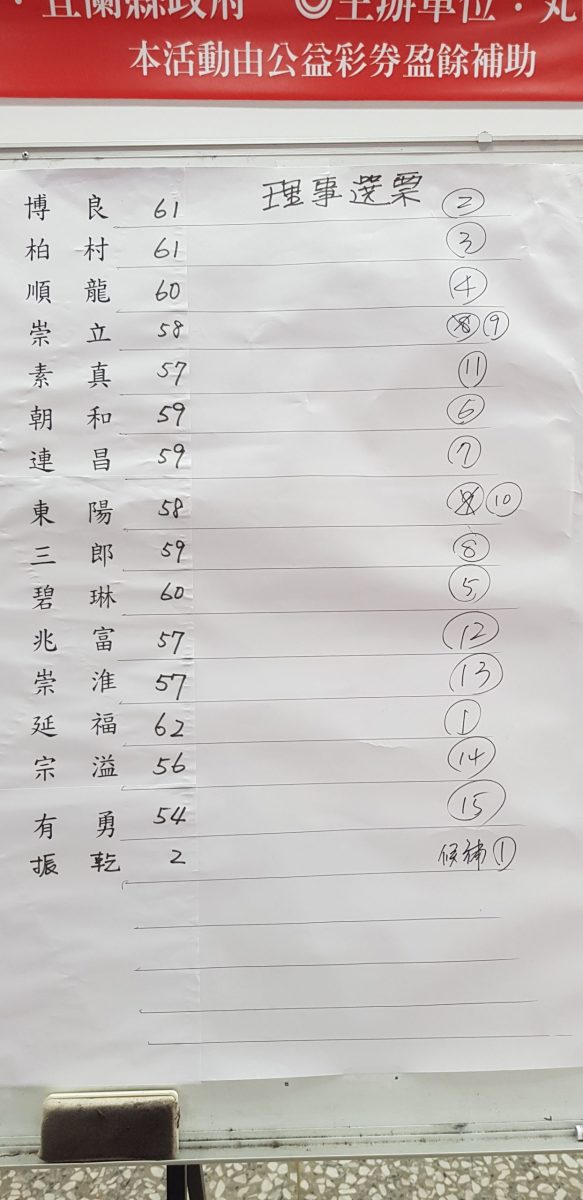 宜蘭縣政府 ◎主辦單位:
本活動由公益彩券盈餘補助
理事選票
博良 61 ②
柏村 61 ③
順龍 60 ④
崇立 58 ⑧ ⑨
素真 57 ⑪
朝和 59 ⑥
連昌 59 ⑦
東陽 58 ⑩
三郎 59 ⑧
碧琳 60 ⑤
兆富 57 ⑫
崇淮 57 ⑬
延福 62 ①
宗溢 56 ⑭
有勇 54 ⑮
振乾 2 候補①